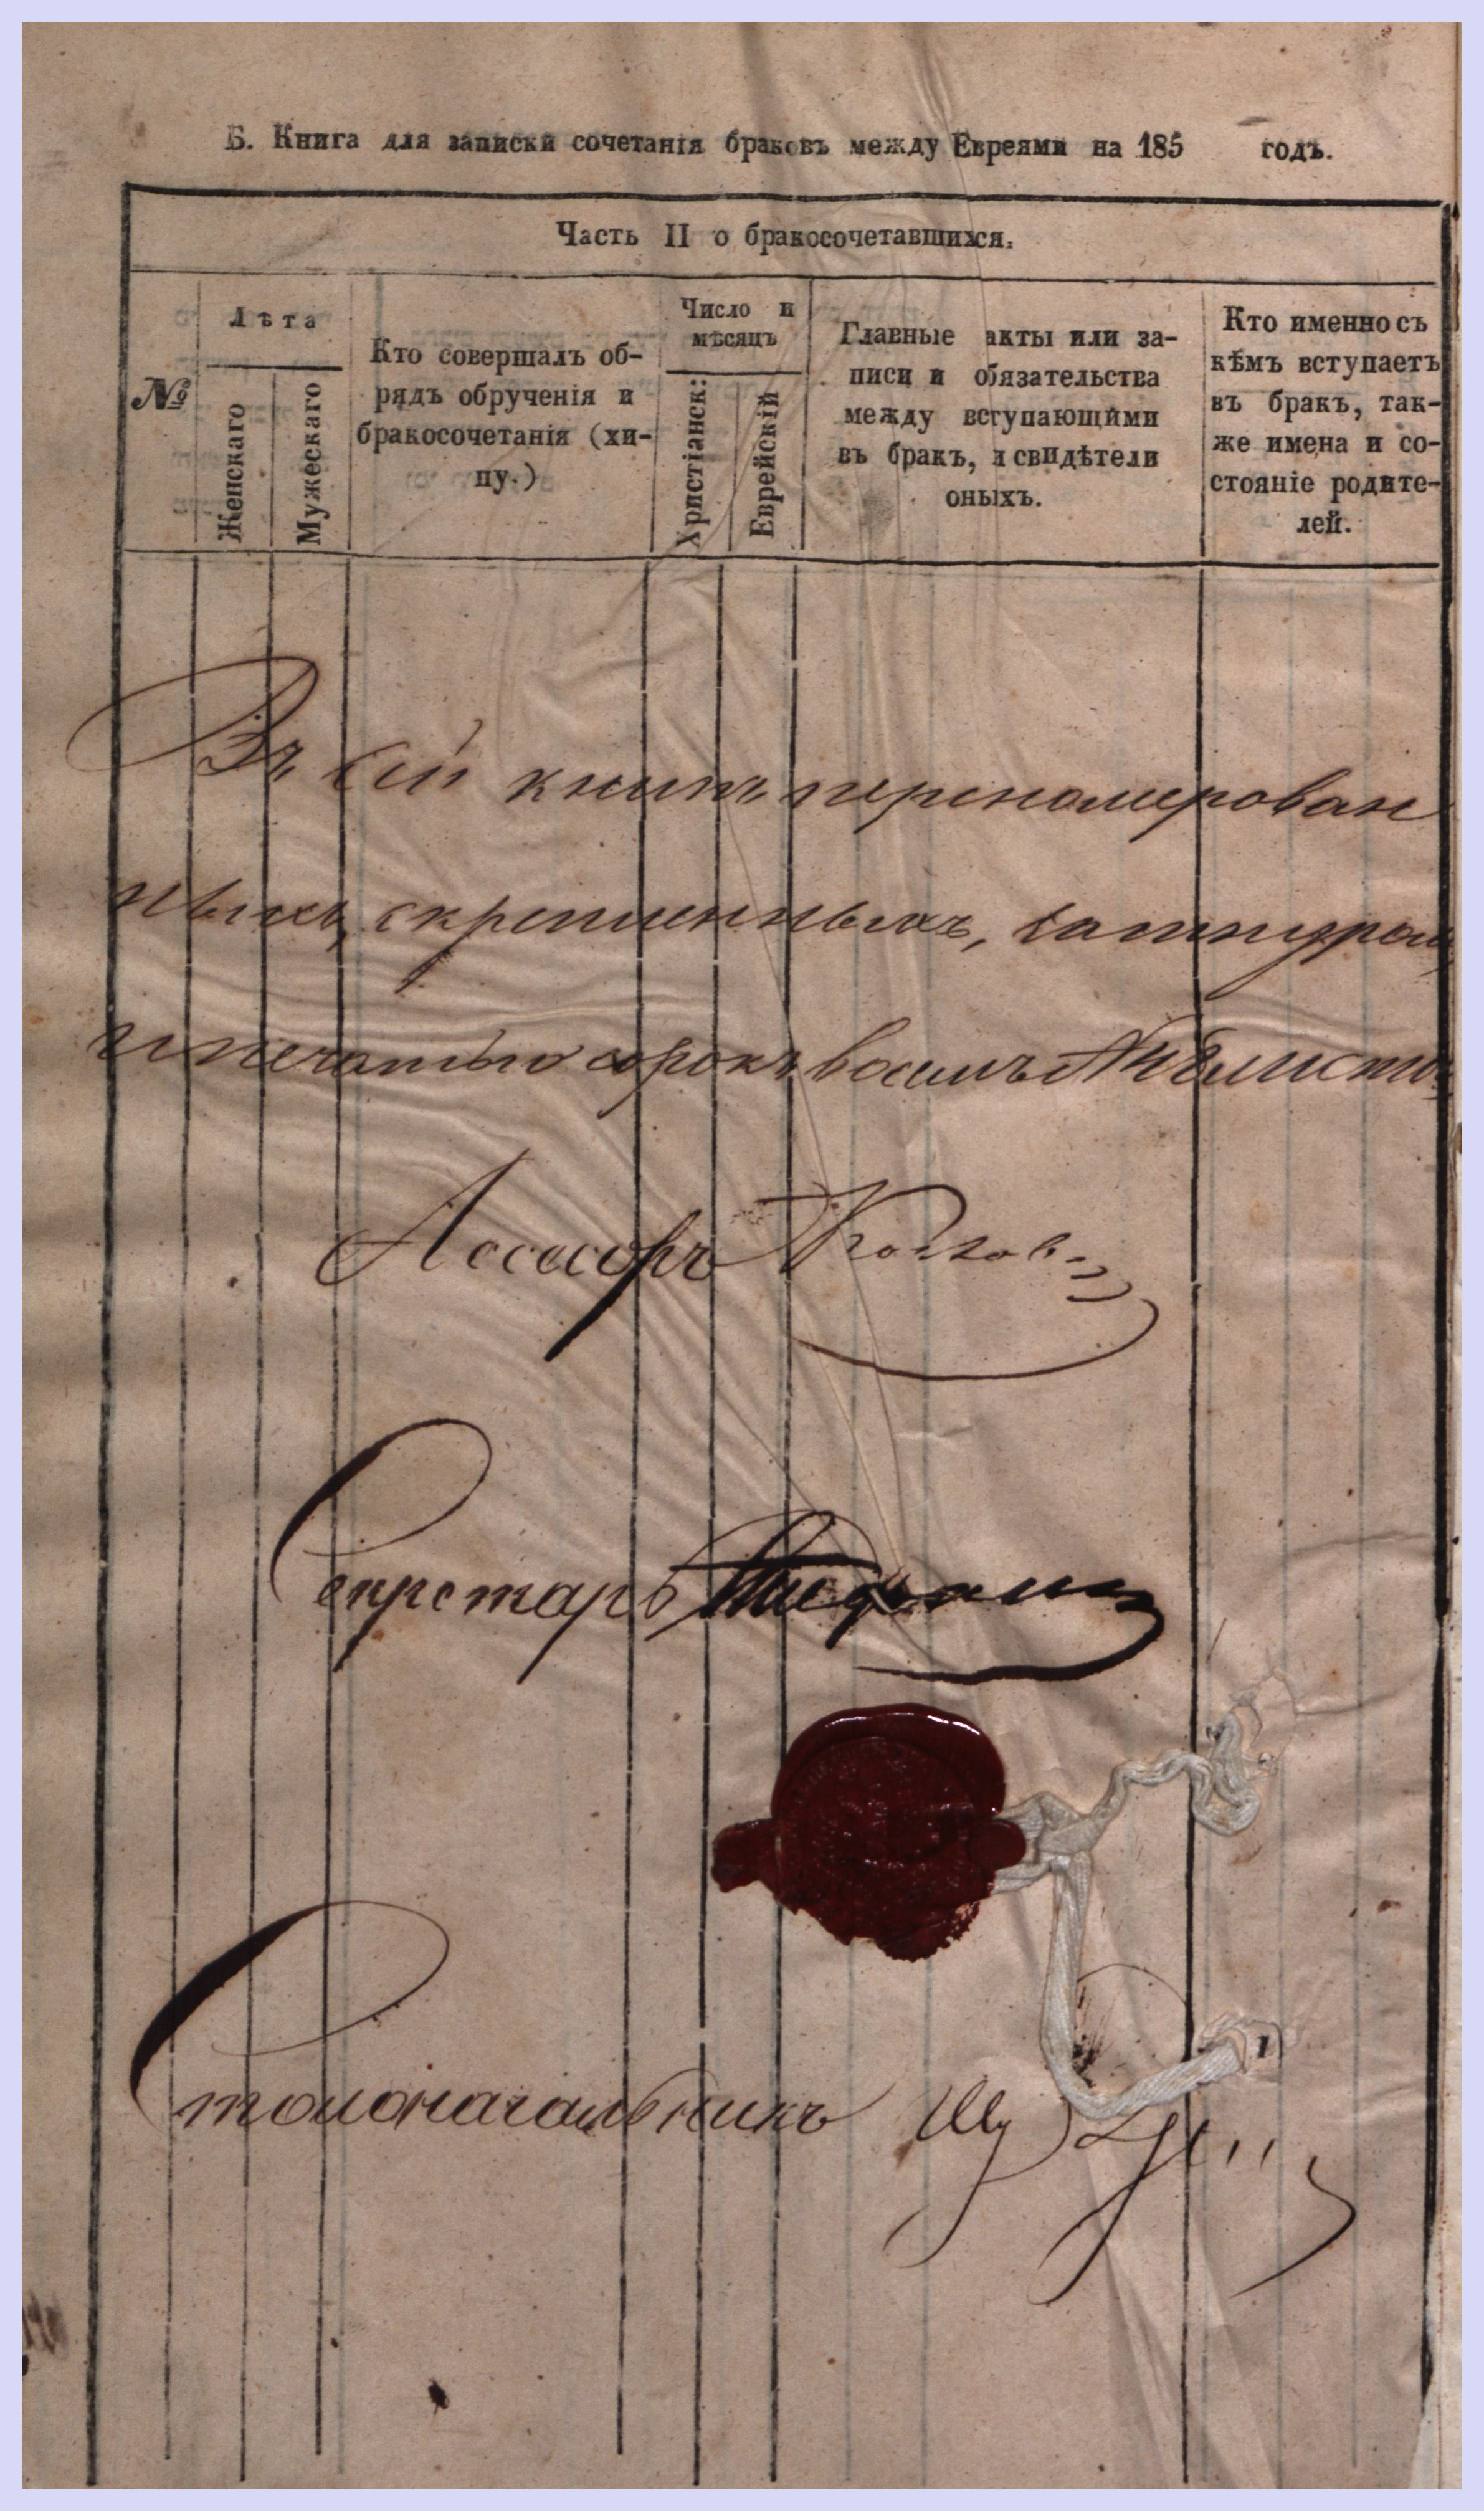 Б. Книга для записки сочетанія браковъ между Евреями на 185 годъ.
Часть II о бракосочетавшихся.
№
Лѣта
Женскаго
Мужескаго
Кто совершалъ об-
рядъ обрученія и
бракосочетанія (хи-
пу.)
Число и
мѣсяцъ
Христіанск:
Еврейскій
Главные акты или за-
писи и обязательства
между вступающими
въ бракъ, и свидѣтели
оныхъ.
Кто именно съ
кѣмъ вступаетъ
въ бракъ, так-
же имена и со-
стояніе родите-
лей.
Въ сей книгѣ перономерован
ныхъ, скрепленныхъ, шнуром
и печатью сорокъ восемь листов
Ассесоръ
Секретарь
Столоначальникъ